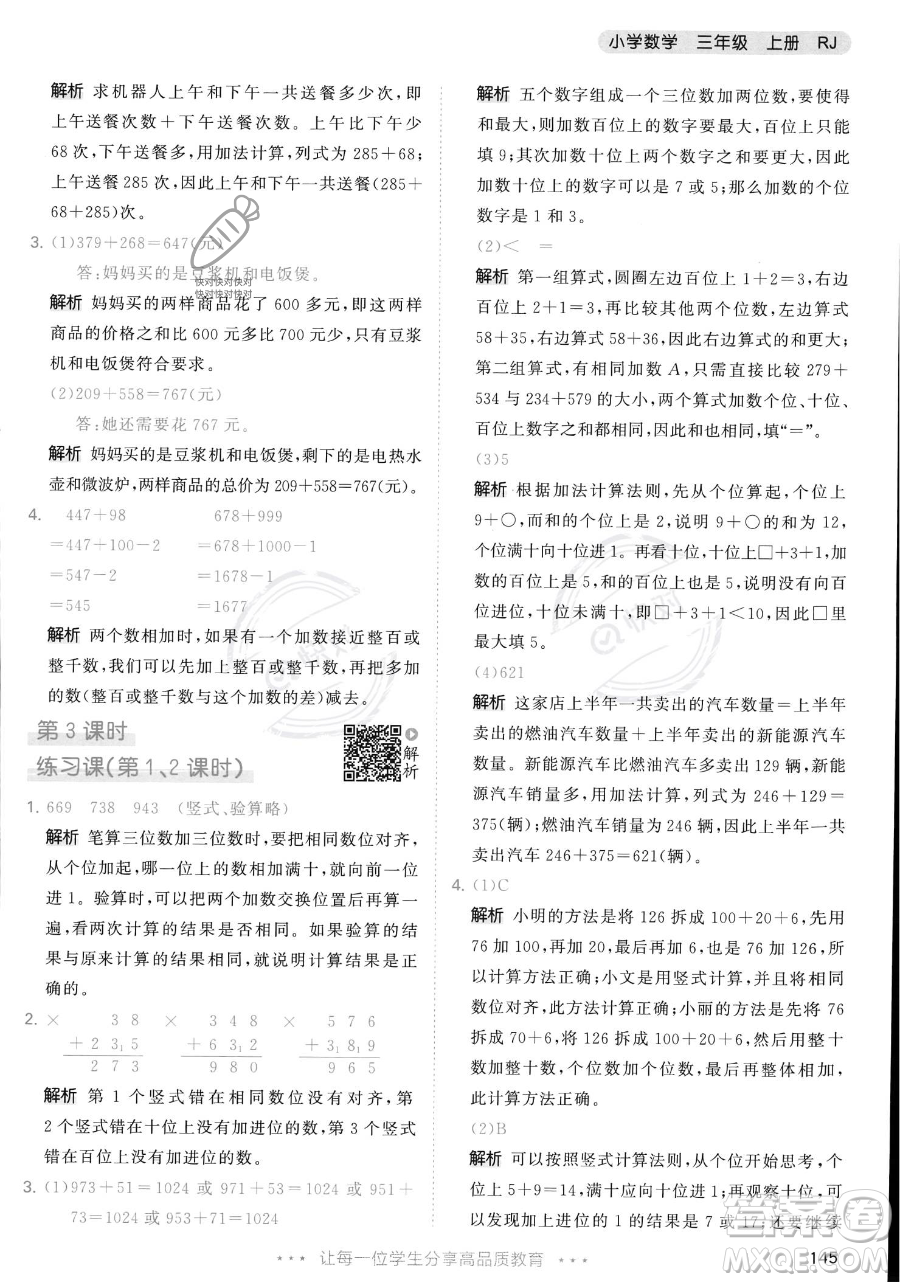 小学数学 三年级 上册 RJ
解析 求机器人上午和下午一共送餐多少次，即
上午送餐次数＋下午送餐次数。上午比下午少
68次，下午送餐多，用加法计算，列式为285＋68；
上午送餐285次，因此上午和下午一共送餐(285＋
68＋285)次。
3. (1)379＋268＝647(元)
答：妈妈买的是豆浆机和电饭煲。
解析 妈妈买的两样商品花了600多元，即这两样
商品的价格之和比600元多比700元少，只有豆浆
机和电饭煲符合要求。
(2)209＋558＝767(元)
答：她还需要花767元。
解析 妈妈买的是豆浆机和电饭煲，剩下的是电热水
壶和微波炉，两样商品的总价为209＋558＝767(元)。
4. 447＋98 678＋999
＝447＋100－2 ＝678＋1000－1
＝547－2 ＝1678－1
＝545 ＝1677
解析 两个数相加时，如果有一个加数接近整百或
整千数，我们可以先加整百或整千数，再把多加的
数(整百或整千数与这个加数的差)减去。
第3课时
练习课(第1、2课时)
解析
1. 669 738 943 (竖式、验算略)
解析 笔算三位数加三位数时，要把相同数位对齐，
从个位加起，哪一位上的数相加满十，就向前一位
进1。验算时，可以把两个加数交换位置后再算一
遍，看两次计算的结果是否相同。若验算的结果
与原来计算的结果相同，则说明计算结果是正
确的。
2. × 3 8 × 3 4 8 × 5 7 6
＋2 3₁5 ＋6 3₁2 ＋3₁8₁9
2 7 3 9 8 0 9 6 5
解析 第1个竖式错在相同数位没有对齐，第
2个竖式错在十位上没有加进位的数，第3个竖式
错在百位上没有加进位的数。
3. (1)973＋51＝1024 或 971＋53＝1024 或 951＋
73＝1024 或 953＋71＝1024
解析 五个数字组成一个三位数加两位数，要使得
和最大，则加数百位上的数字要最大，百位上只能
填9；其次加数十位上两个数字之和要最大，因此
加数十位上的数字可以是7或5；那么加数的个位
数字是1和3。
(2)＜ ＝
解析 第一组算式，圆圈左边百位上1＋2＝3，右边
百位上2＋1＝3，再比较其他两个位数，左边算式
58＋35，右边算式58＋36，因此右边算式的和更大。
第二组算式，有相同加数A，只需要比较279＋
534与234＋579的大小，两个算式加数个位、十位、
百位上数字之和都相同，因此和相同，填“＝”。
(3)5
解析 根据加法计算法则，先从个位算起，个位上
9＋○，而和的个位上是2，说明个位上的和是12，
个位满十向十位进1。再看十位，十位上□＋3＋1，加
数的百位上和是5，和的百位也是5，说明没有向百
位进位，十位未满十，即□＋3＋1＜10，因此□里
最大填5。
(4)621
解析 这家店上半年一共卖出的汽车数量＝上半年
卖出的燃油汽车数量＋上半年卖出的新能源汽车
数量，新能源汽车比燃油汽车多129辆，则新能
源汽车销量为燃油汽车销量加129，即246＋129＝
375(辆)；燃油汽车销量为246辆，因此上半年一共
卖出汽车246＋375＝621(辆)。
4. (1)C
解析 小明的方法是将126拆成100＋20＋6，先用
76加100，再加20，最后加6，就是76加126，所
以计算方法正确；小文是用竖式计算，并且将相同
数位对齐，计算方法正确；小丽的方法是将76
拆成70＋6，将126拆成120＋6，整十数加整十
数，个位数加个位数，个位数不应该是10，因此方
法错误。
(2)B
解析 可以按照竖式计算法则，从个位开始思考，个
位上5＋9＝14，向十位进1；再观察十位，
可以发现加上进位的是7或17；还要继续
让每一位学生分享高品质教育
145
快对快对快对
快对快对快对
答案圈
MXQE.COM